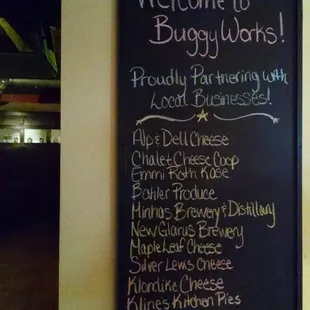 Welcome to
BuggyWorks!
Proudly Partnering with
Local Businesses!
Alp & Dell Cheese
Chalet Cheese Coop
Emmi Roth Käse
Bahler Produce
Minhas Brewery & Distillary
New Glarus Brewery
Maple Leaf Cheese
Silver Lewis Cheese
Klondike Cheese
Kline's Kitchen Pies